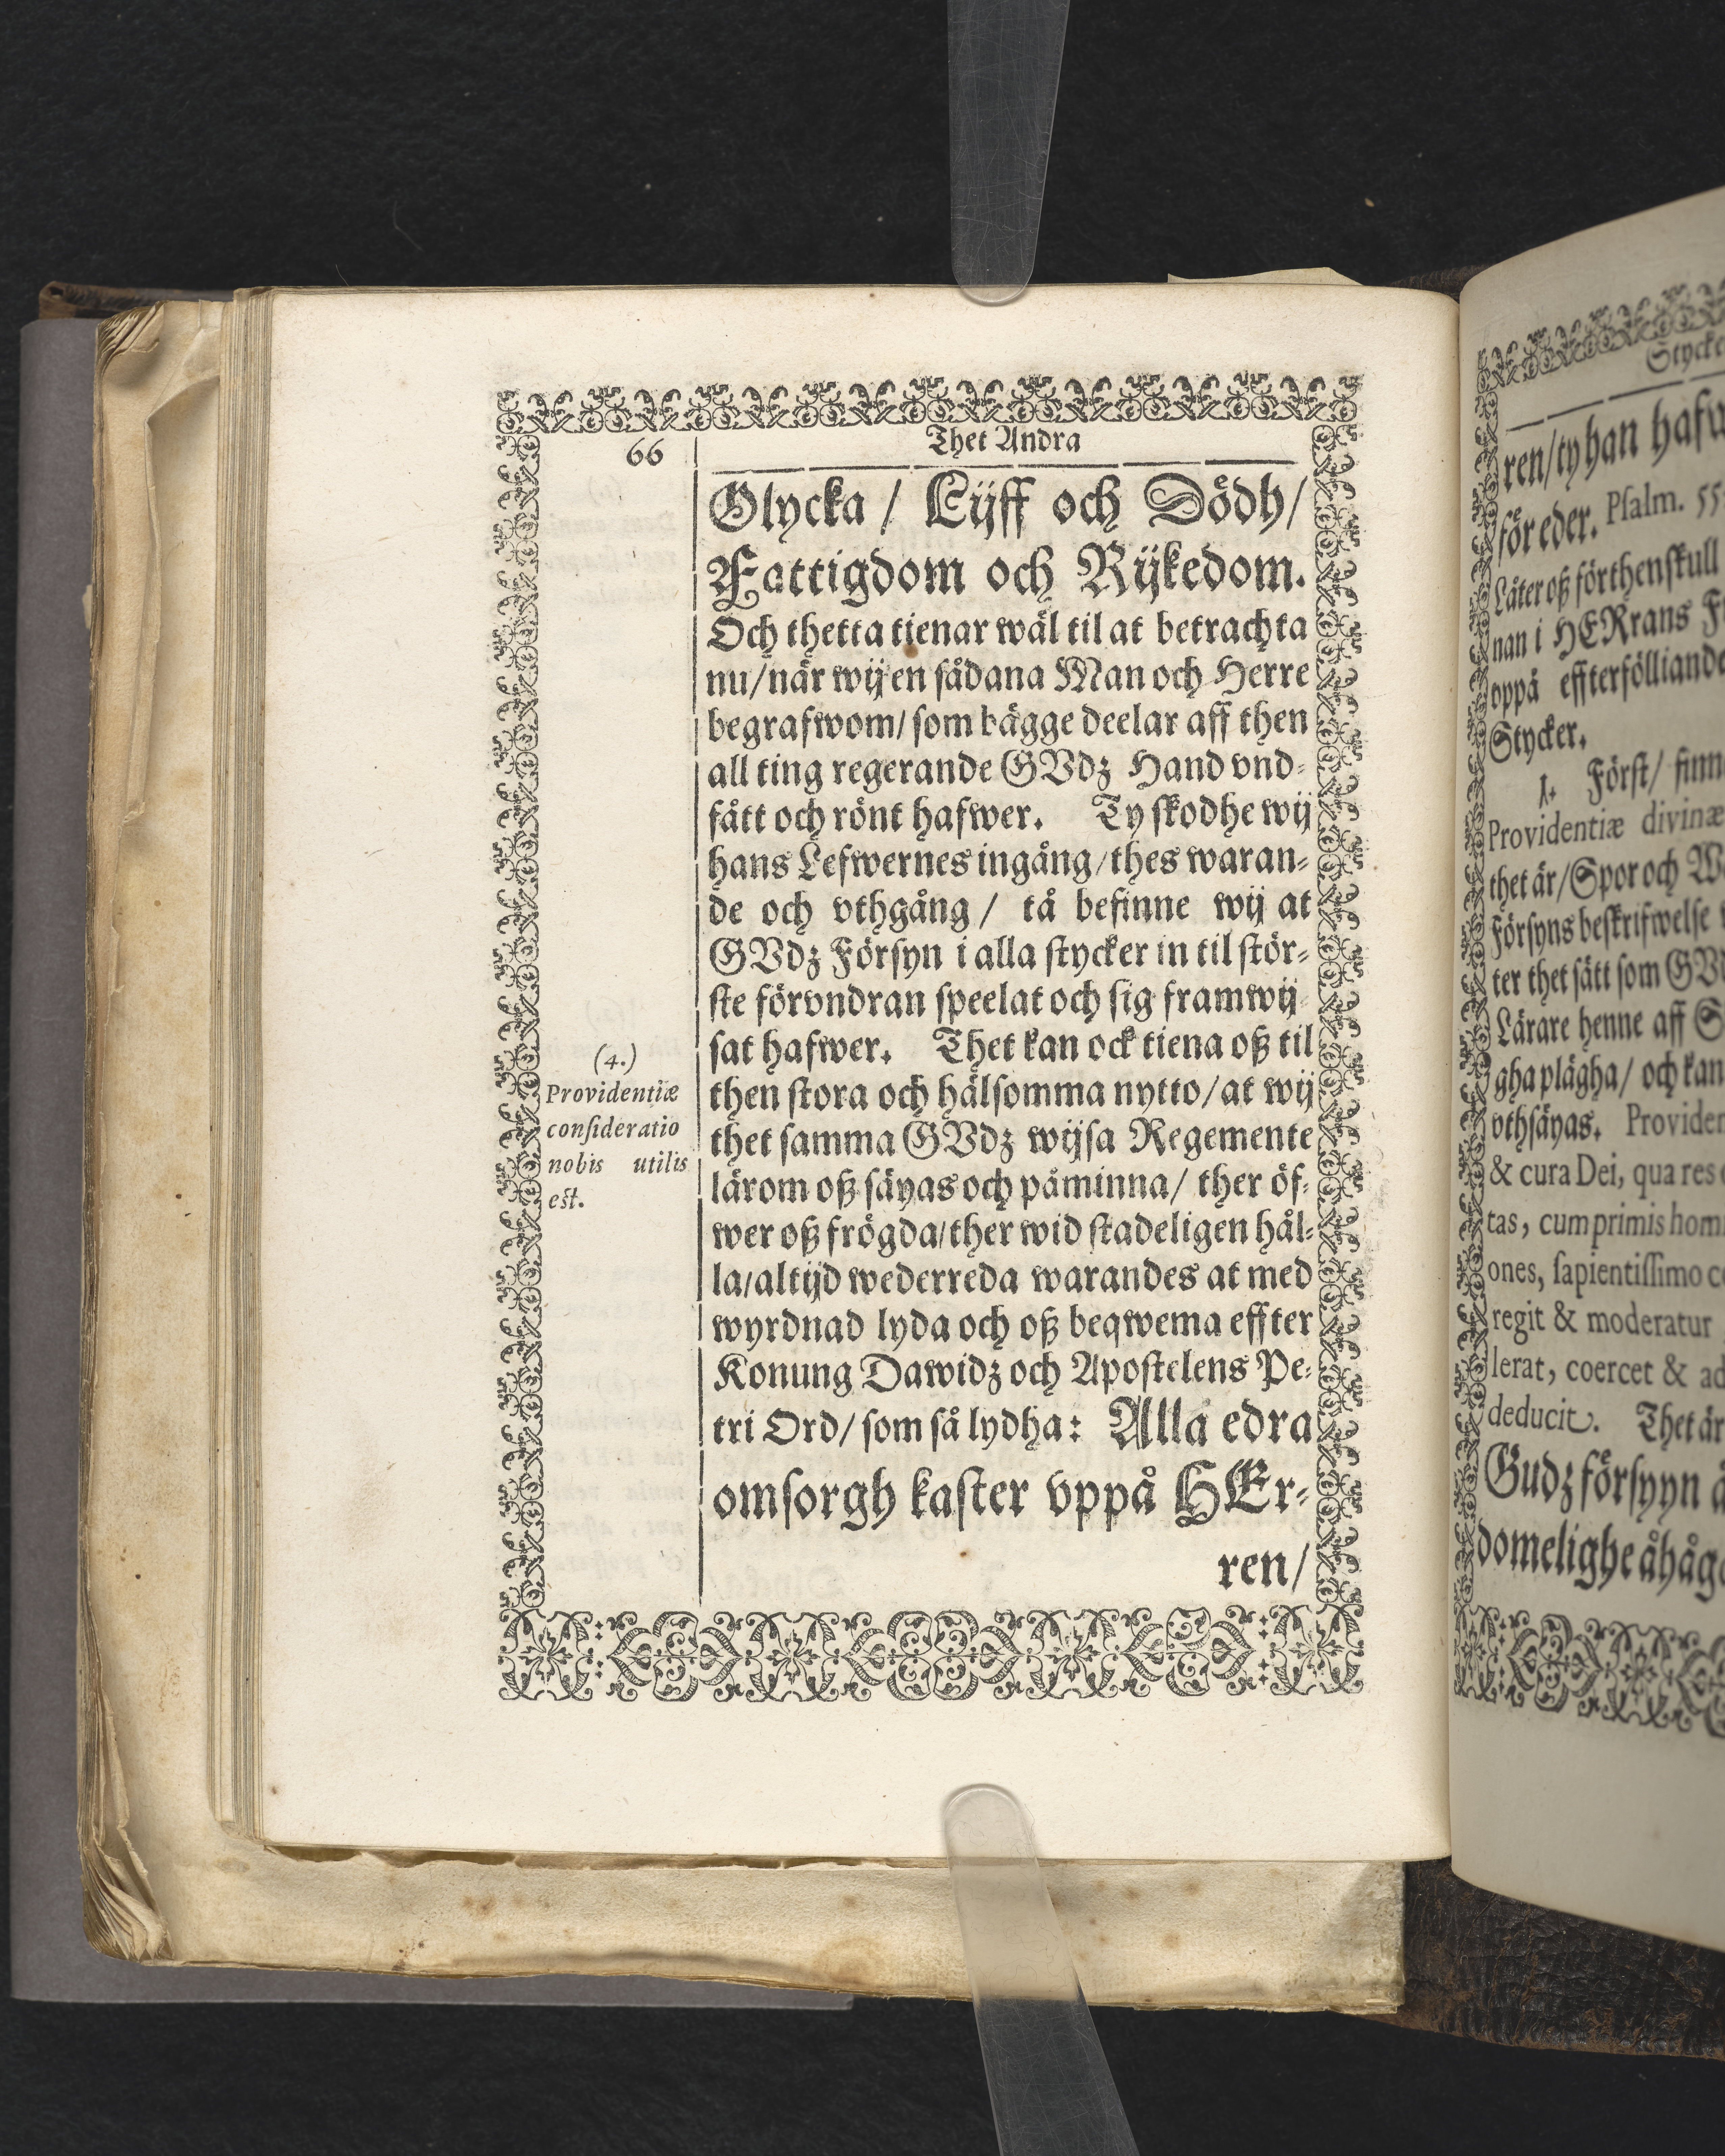 66
Thet Andra
Olycka / Lijff och Dödh/
Fattigdom och Rijkedom.
Och thetta tienar wäl til at betrachta
nu/ när wij en sådana Man och Herre
begrafwom/ som bägge deelar aff then
all ting regerande GVdz Hand vnd-
fått och rönt hafwer. Ty skodhe wij
hans Lefwernes ingång/ thes waran-
de och vthgång / tå befinne wij at
GVdz Försyn i alla stycker in til stör-
ste förvndran speelat och sig framwij-
sat hafwer. Thet kan ock tiena oß til
then stora och hälsomma nytto/ at wij
thet samma GVdz wijsa Regemente
lärom oß säyas och påminna/ ther öf-
wer oß frögda/ ther wid stadeligen hål-
la/ altijd wederreda warandes at med
wyrdnad lyda och oß beqwema effter
Konung Dawidz och Apostelens Pe-
tri Ord/ som så lydha: Alla edra
omsorgh kaster vppå HEr-
ren/
(4.)
Providentiæ
consideratio
nobis utilis
est.
Stycke
ren/ ty han hafw
för eder. Psalm. 55
Låter oß förthenskull
nan i HERrans F
oppå effterfölliande
Stycker.
1. Först/ finn
Providentiæ divinæ
thet är/ Spor och W
Försyns beskrifwelse
ter thet sätt som GV
Lärare henne aff S
gha plägha/ och kan
vthsäyas. Providen
& cura Dei, qua res
tas, cumprimis hom
ones, sapientissimo c
regit & moderatur
lerat, coercet & ad
deducit. Thet är
Gudz försyyn ä
domelighe åhåg